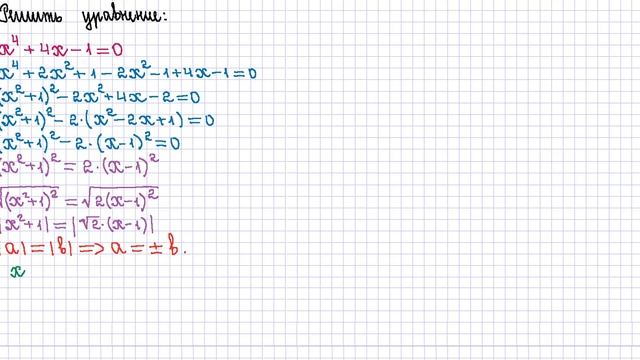 Решить уравнение:
x⁴+4x-1=0
x⁴+2x²+1-2x²-1+4x-1=0
(x²+1)²-2x²+4x-2=0
(x²+1)²-2·(x²-2x+1)=0
(x²+1)²-2·(x-1)²=0
(x²+1)²=2·(x-1)²
√(x²+1)²=√2(x-1)²
|x²+1|=|√2·(x-1)|
|a|=|b|=>a=±b.
x